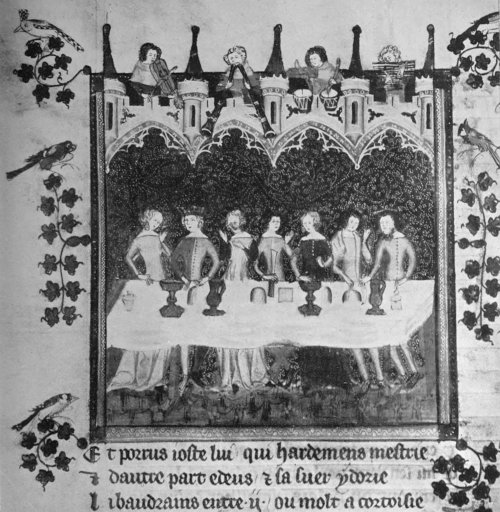 E t porrus ioste lui qui hardemens mestrie
⁊ dautre part edeus ⁊ sa suer ydorie
l ibaudrains entre .ij. ou molt a cortoisie